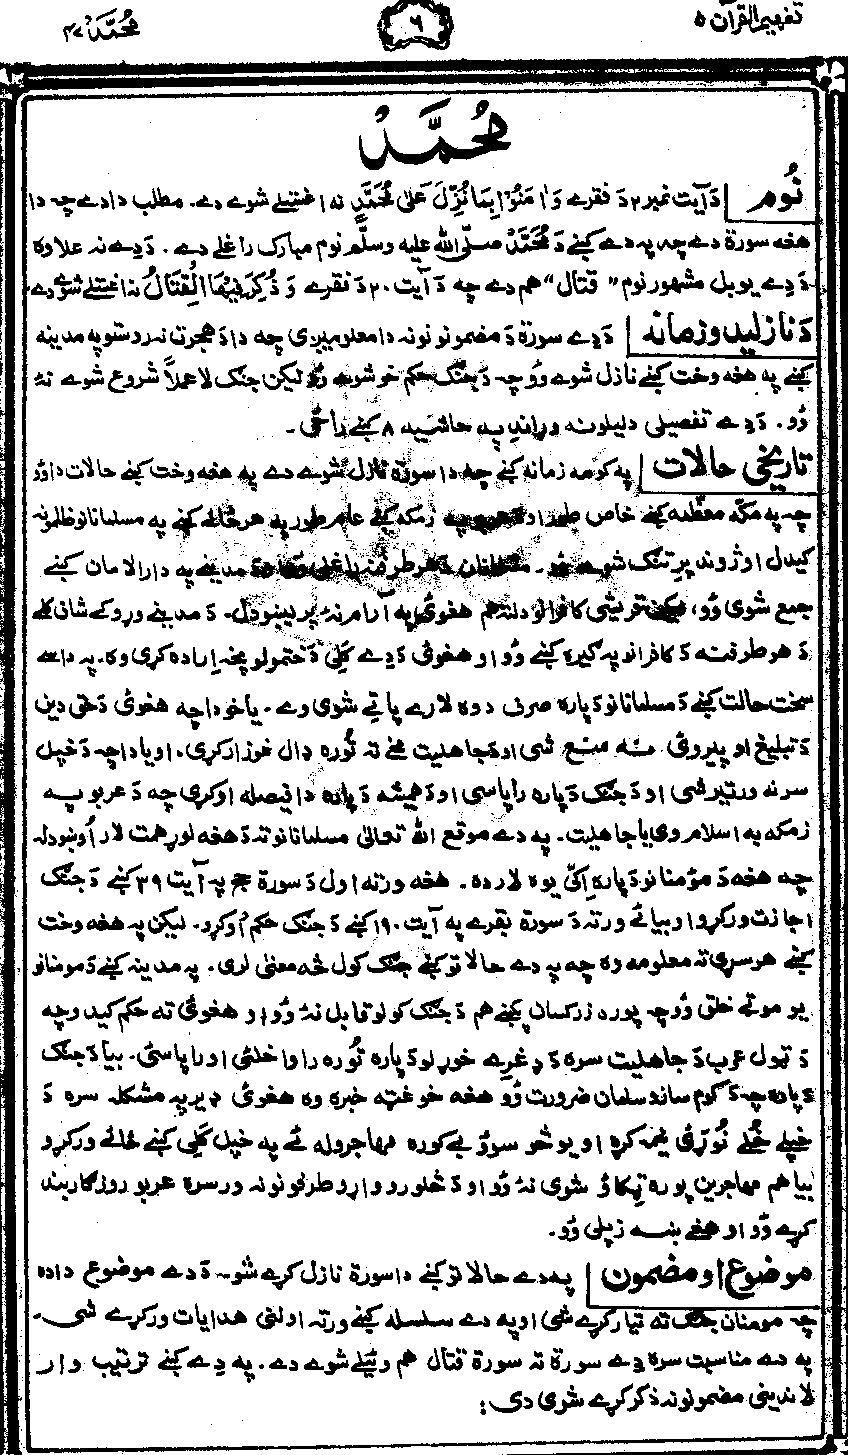 تفهيم القرآن ۵
۶
مُحَمَّد ۴۷
مُحَمَّدْ
نُوم
دَ آيت نمبر ۲ دَ فقرے وَاٰمَنُوْا بِمَا نُزِّلَ عَلٰى مُحَمَّدٍ نه اغستلے شوے دے. مطلب دا دے چه دا
هغه سورة دے چه په دے كښے دَ مُحَمَّدْ صلّى الله عليه وسلّم نوم مبارك راغلے دے. دَ دِے نه علاوه
دَ دِے يو بل مشهور نوم "قتال" هم دے چه دَ آيت ۲۰ دَ فقرے وَذُكِرَ فِيْهَا الْقِتَالُ نه اغستلے شوے دے.
دَ نازليدو زمانه
دَ دِے سورة دَ مضمونونو نه دا معلوميږى چه دا دَ هجرت نه روستو په مدينه
كښے په هغه وخت كښے نازل شوے وُو چه دَ جنګ حكم خو شوے وُو ليكن جنګ لا عملاً شروع شوے نهٔ
وُو. دَ دِے تفصيلى دليلونه وړاندِ په حاشيه ۸ كښے راځى.
تاريخى حالات
په كومه زمانه كښے چه دا سورة نازل شوے دے په هغه وخت كښے حالات دا وُو
چه په مكّه معظّمه كښے خاص طور او دَ عربو په زمكه كښے عام طور په هر ځائے كښے په مسلمانانو ظلمونه
كيدل او ژوند پرِ تنګ شوے وُو. مسلمانان دَ هر طرف نه راغلى وُو او دَ مدينے په دارالامان كښے
جمع شوى وُو، ليكن قريشى كافرانو دلته هم هغوئ په آرام نهٔ پريښودل. دَ مدينے وړوكے شان كلے
دَ هر طرف نه دَ كافرانو په ګيره كښے وُو او هغوئ دَ دِے كلى دَ ختمولو پخه اِراده كړى وه. په داسے
سخت حالت كښے دَ مسلمانانو دَ پاره صرف دوه لارے پاتے شوى وے. يا خو دا چه هغوئ دَ حق دين
دَ تبليغ او پيروئ نه منع شى او دَ جاهليت مخے ته تُوره ډال غوزار كړى. او يا دا چه دَ خپل
سر نه ورتير شى او دَ جنګ دَ پاره راپاسى او دَ هميشه دَ پاره دا فيصله اوكړى چه دَ عربو په
زمكه به اسلام وى يا جاهليت. په دے موقع الله تعالىٰ مسلمانانو ته دَ هغه لور همت لار اُوښودله
چه هغه دَ مؤمنانو دَ پاره اِكى يوه لار ده. هغه ورته اول دَ سورة حج په آيت ۳۹ كښے دَ جنګ
اجازت وركړو او بيائے ورته دَ سورة بقرے په آيت ۱۹۰ كښے دَ جنګ حكم اُوكړو. ليكن په هغه وخت
كښے هر سړى ته معلومه وه چه په دے حالاتو كښے جنګ كول څه معنىٰ لرى. په مدينه كښے دَ مومنانو
يو موټے خلق وُو چه پوره زر كسان پكښے هم دَ جنګ كولو قابل نهٔ وُو او هغوئ ته حكم كيدو چه
دَ ټول عرب دَ جاهليت سره دَ ډغرے خوړلو دَ پاره تُوره راواخلئى او راپاسئى. بيا دَ جنګ
دَ پاره چه دَ كوم سازوسامان ضرورت وُو هغه خو غټه خبره وه هغوئ ډير په مشكله سره دَ
خپلے خُلے نُوړئ جمع كړه او يو څو سوؤ بے كوره مهاجرو له ئے په خپل كلى كښے ځائے وركړو
بيا هم مهاجرين پوره ټيكاؤ شوى نهٔ وُو او دَ څلورو واړو طرفونو نه ورسره عربو روزګار بند
كړے وُو او هغے بنه زيلى وُو.
موضوع او مضمون
په دے حالاتو كښے دا سورة نازل كړے شو. دَ دے موضوع دا ده
چه مومنان جنګ ته تيار كړے شى او په دے سلسله كښے ورته اولنى هدايات وركړے شى.
په دے مناسبت سره دِے سورة ته سورة قتال هم وئيلے شوے دے. په دِے كښے ترتيب وار
لاندينى مضمونونه ذكر كړے شوى دى: